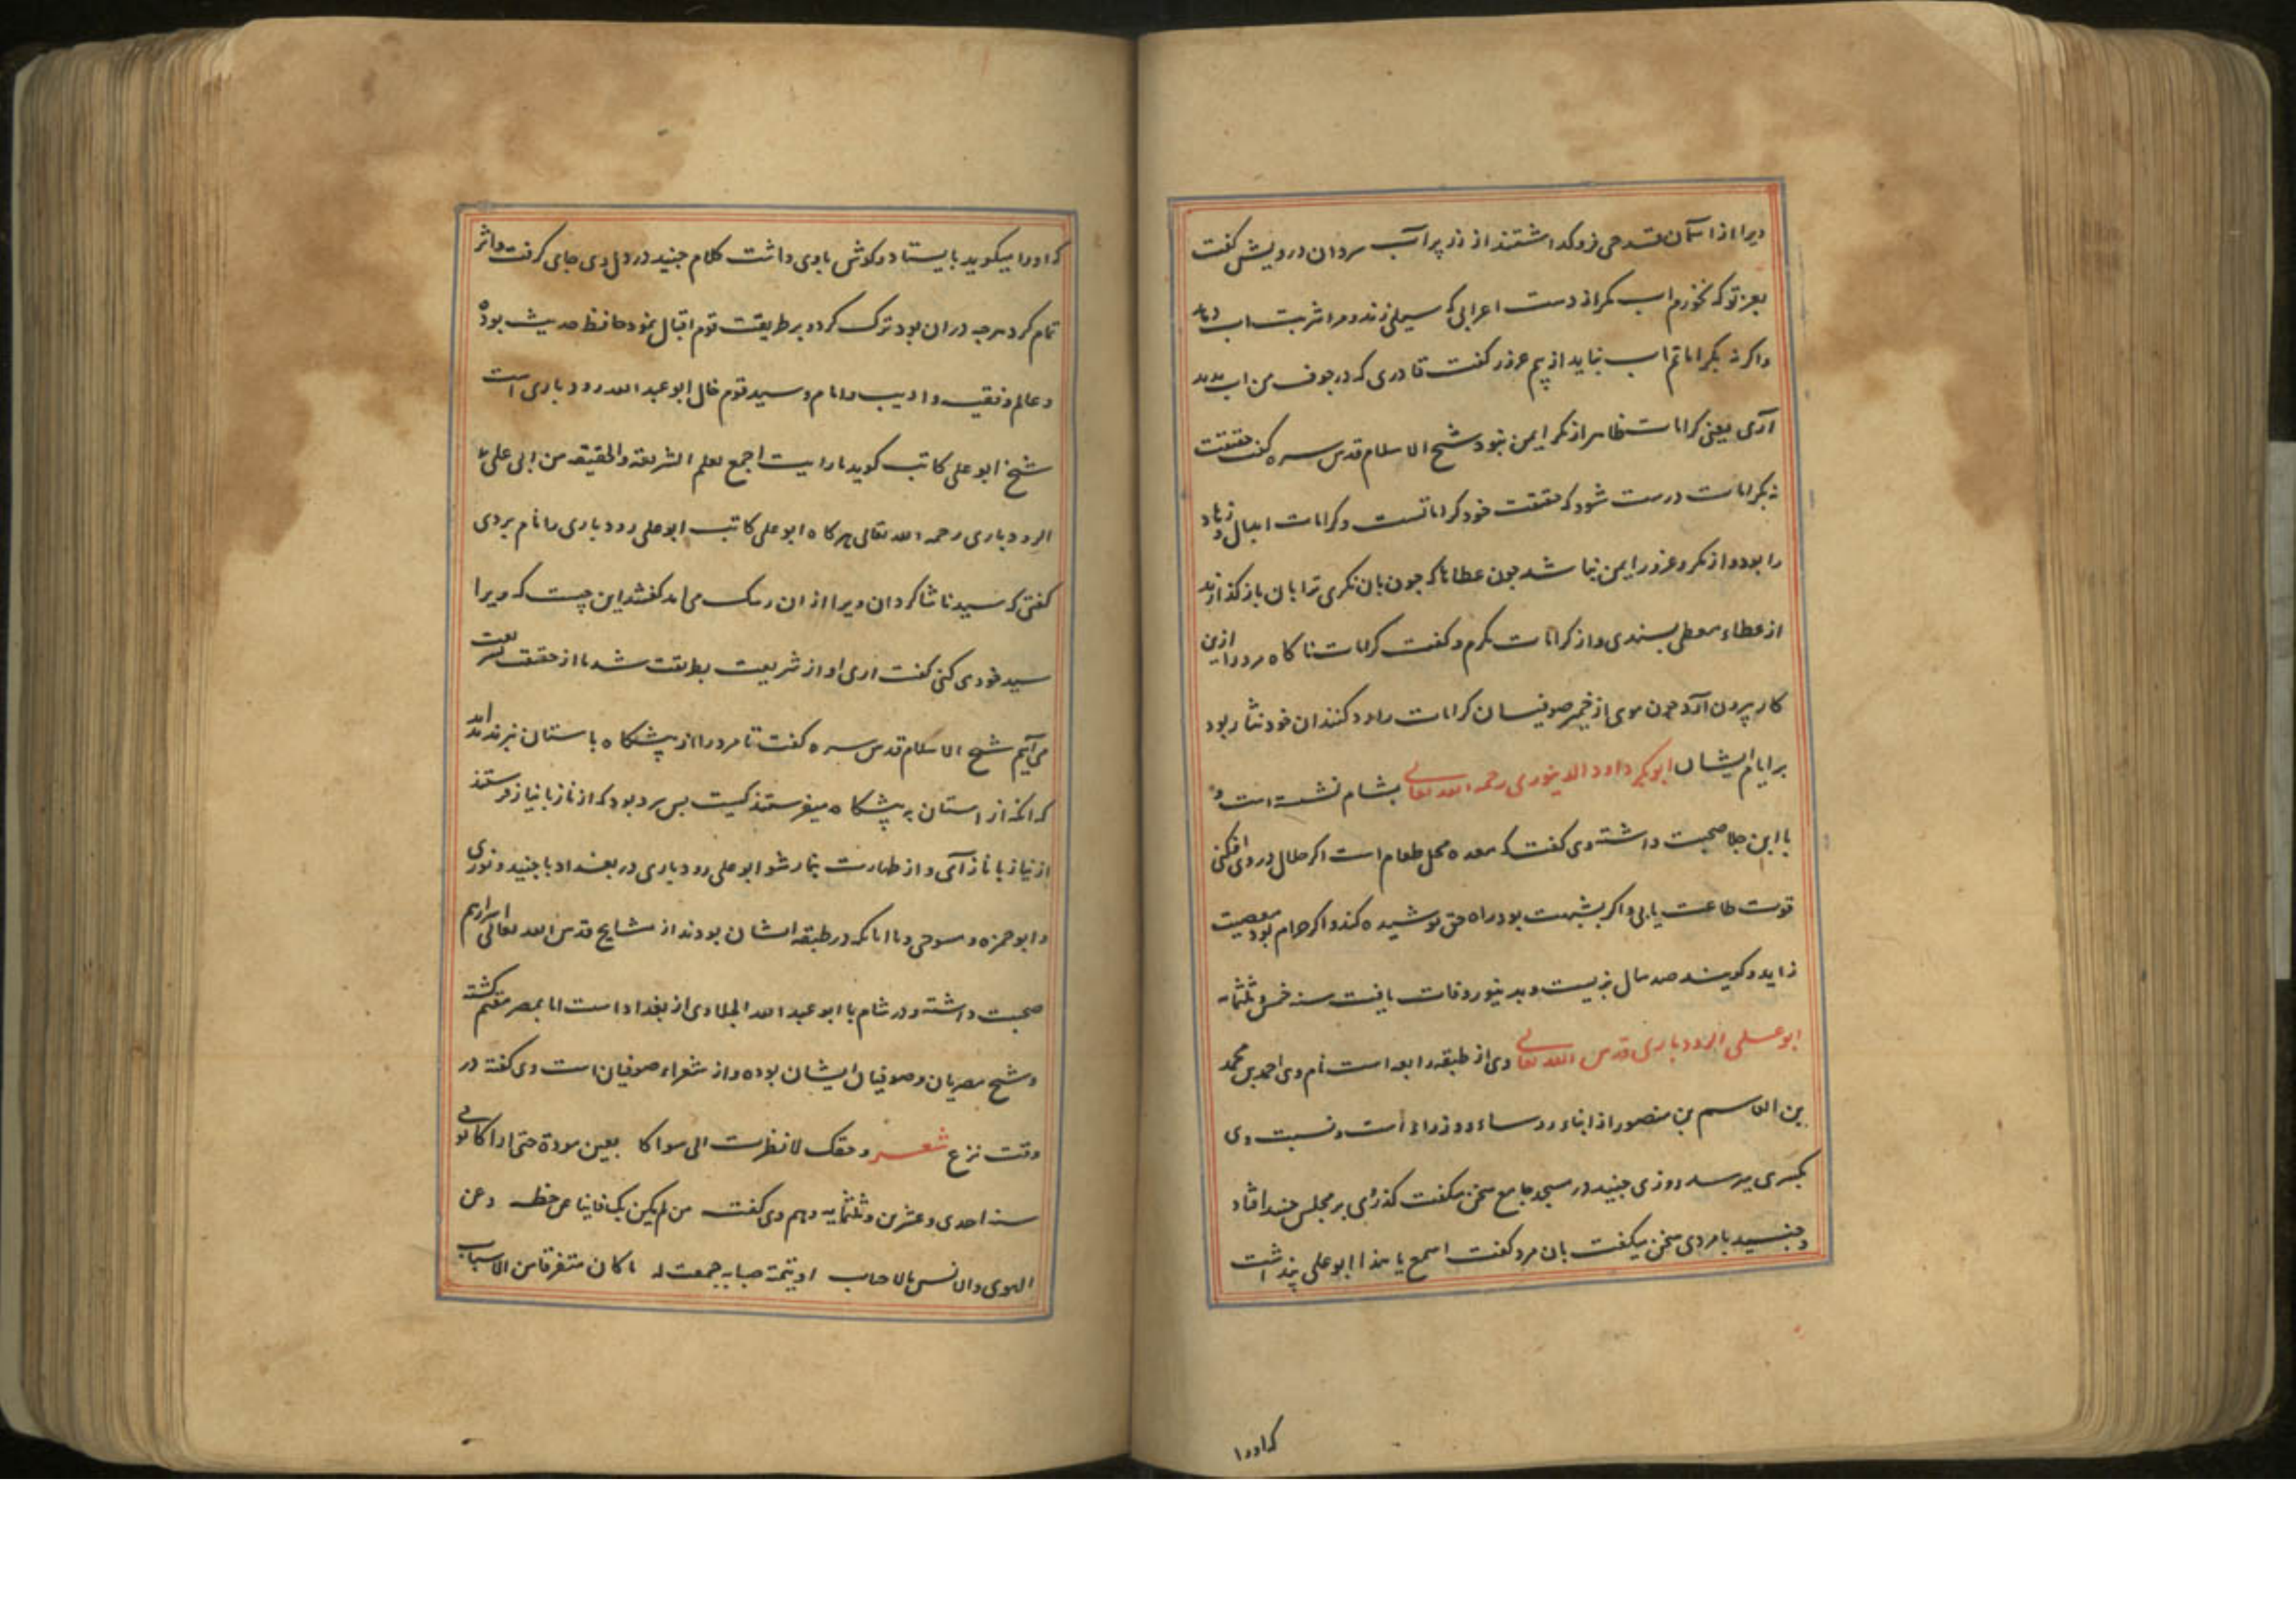 ویرا از اسمان قدحی فروکداشتند از زر پر آب سرد ان درویش کفت
بعز تو که نخورم اب مکر از دست اعرابی که سیلی زند و مرا شربت اب دهد
واکر نه بکراماتم اب نباید از بیم غرور کفت قادری که در جوف من اب بدید
آری یعنی کرامات ظاهر از مکر ایمن نبود شیخ الاسلام قدس سره کفت حقیقت
نه بکرامات درست شود که حقیقت خود کراماتست وکرامات ابدال و زهاد
را بود و از مکر و غرور ایمن نباشد جون عطاها که جون بان نکری ترا بان باز کذارند
از عطاء معطی بسندی و از کرامات مکرم و کفت کرامات ناکاه مرد را ازین
کار بیرون آرد جون موی از خمیر صوفیان کرامات را رد کنند ان خود نثار بود
بر ایام ایشان ابوبکر داود الدینوری رحمه الله تعالی بشام نشسته است و
با ابن جلا صحبت داشته وی کفت که معده محل طعام است اکر حلال در وی افکنی
قوت طاعت یابی و اکر بشبهت بود راه حق پوشیده کند و اکر حرام بود معصیت
زاید و کویند صد سال بزیست و بدینور وفات یافت سنه خمس و ثلثمایه
ابو علی الرودباری قدس الله تعالی وی از طبقه رابعه است نام وی احمد بن محمد
بن القاسم بن منصور از ابناء روساء و وزراء است و نسبت وی
بکسری میرسد روزی جنید در مسجد جامع سخن میکفت کذر وی بر مجلس جنید افتاد
و جنید با مردی سخن میکفت بان مرد کفت اسمع یا هذا ابوعلی پنداشت
که اورا
که اورا میکوید بایستاد و کوش باوی داشت کلام جنید در دل وی جای کرفت و اثر
تمام کرد هرجه در ان بود ترک کرد و بر طریقت قوم اقبال نمود حافظ حدیث بوده
و عالم و فقیه و ادیب و امام و سید قوم خال ابو عبد الله رودباری است
شیخ ابو علی کاتب کوید ما رایت اجمع لعلم الشریعة والحقیقه من ابی علی
الرودباری رحمه الله تعالی هرکاه ابو علی کاتب ابو علی رودباری را نام بردی
کفتی که سیدنا شاکردان ویرا از ان رشک می امد کفتند این چیست که ویرا
سید خود می کنی کفت اری او از شریعت بطریقت شد ما از حقیقت بشریعت
می آییم شیخ الاسلام قدس سره کفت تا مرد را از پیشکاه باستان نبرند
که انکه از استان به پیشکاه میفرستند کیست بس مرد بود که از ناز با نیاز فرستند
از نیاز با ناز آی و از طهارت بنماز شو ابو علی رودباری در بغداد با جنید و نوری
و ابو حمزه و مسوحی و با انانکه در طبقه ایشان بودند از مشایخ قدس الله تعالی اسرارهم
صحبت داشته و در شام با ابو عبد الله الجلا وی از بغداد است اما بمصر مقیم کشته
و شیخ مصریان و صوفیان ایشان بوده و از شعراء صوفیان است وی کفته در
وقت نزع شعر و حقک لا نظرت الی سواکا بعین مودة حتی اراکا توفی
سنه احدی و عشرین و ثلثمایه وهم وی کفت من لم یکن بک فانیا عن حظه وعن
الهوی والانس بالاحباب او تیمته صبابه جمعت له ما کان متفرقا من الاسباب